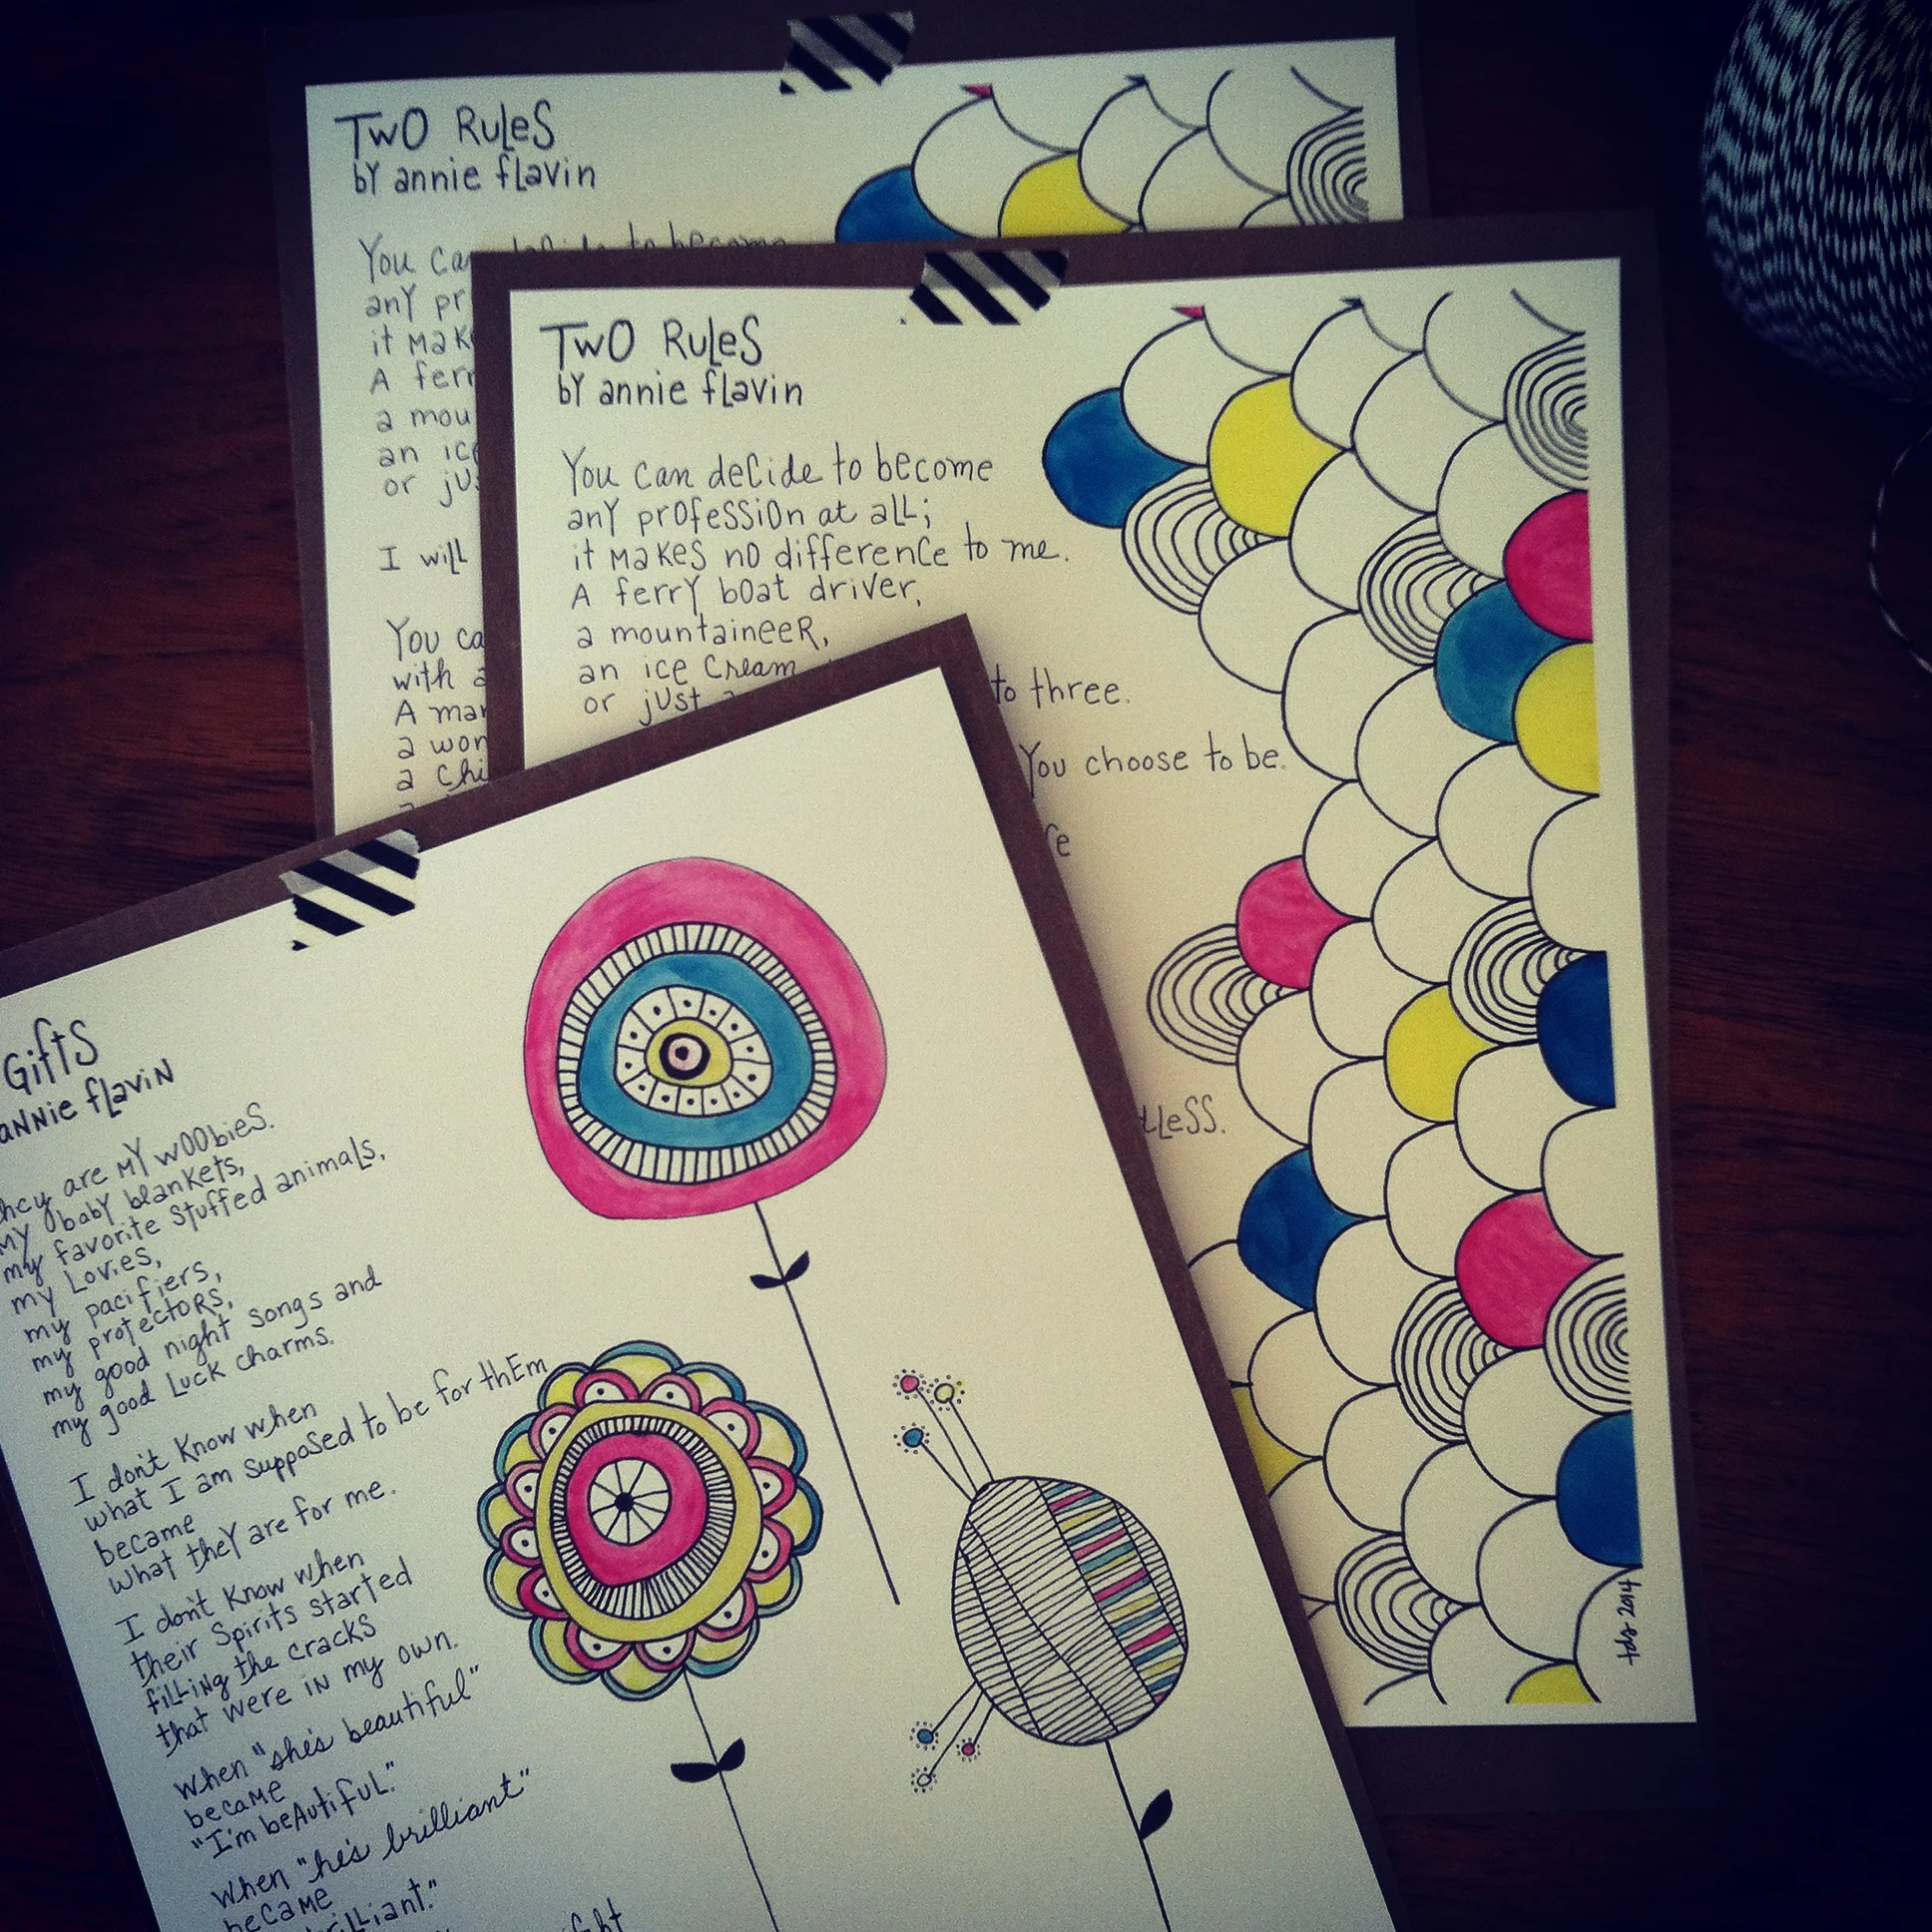 TWO RULES
by annie flavin
You can decide to become
any pr
it mak
A ferr
a mou
an ice
or jus
I will
You ca
with a
A man
a wom
a chi
TWO RULES
by annie flavin
You can decide to become
any profession at all;
it makes no difference to me.
A ferry boat driver,
a mountaineer,
an ice cream
or just a to three.
You choose to be.
ce
tless.
tds 2014
Gifts
annie flavin
hey are my woobies.
my baby blankets,
my favorite stuffed animals,
my lovies,
my pacifiers,
my protectors,
my good night songs and
my good luck charms.
I don't know when
what I am supposed to be for them
became
what they are for me.
I don't know when
their spirits started
filling the cracks
that were in my own.
When "she's beautiful"
became
"I'm beautiful."
When "he's brilliant"
became
brilliant."